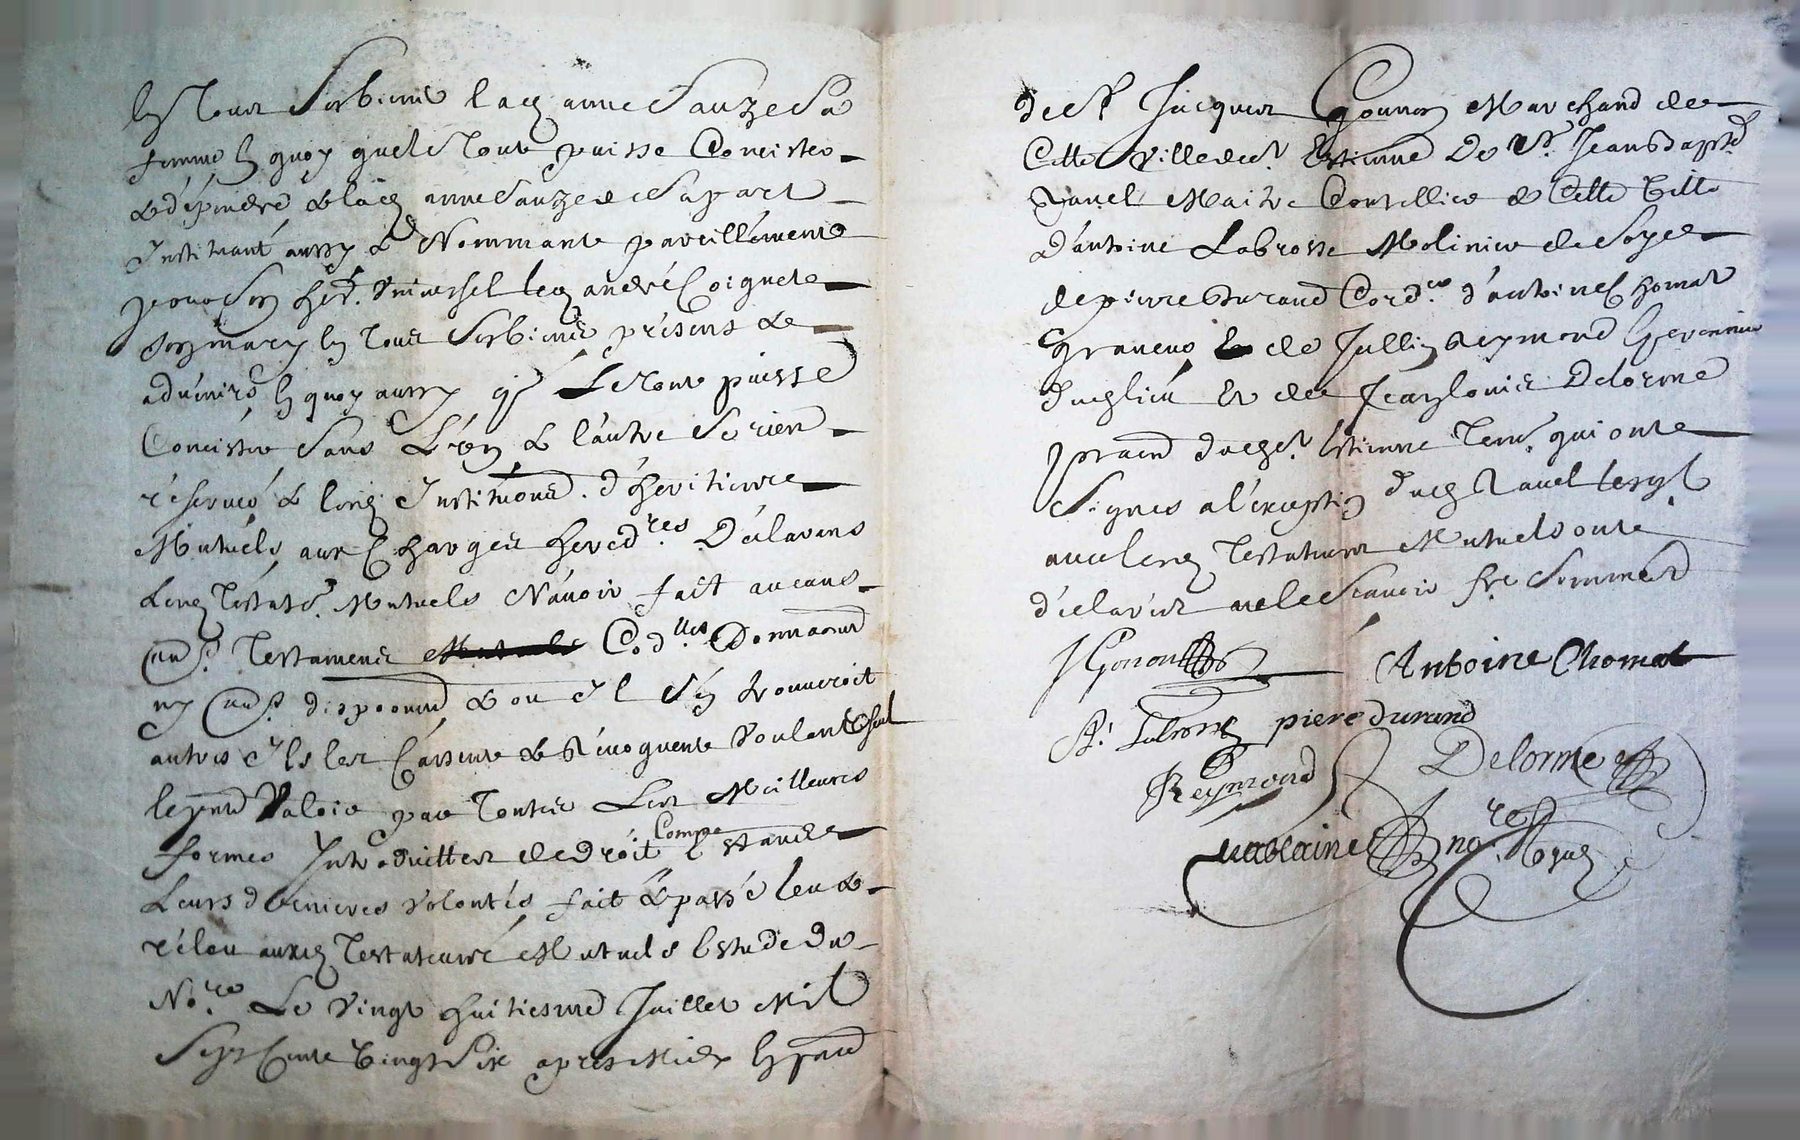 En tous ses biens lad. anne Sauze Sa
femme En quoy quels toute puisse Concister
& dépendre & lad. anne Sauze de Sa part
Instituant aussy & Nommant pareillement
pour Son her. Universsel led. andré Coignet
Son mary En tous Ses biens présens &
advenirs En quoy aussy q. Le tout puisse
Concister Sans L'un & l'autre Se rien
réserver & lesd. Institutions d'héritiere
Mutuels aux Charges hered.res Déclarans
Lesd. Testat.rs Mutuels N'avoir fait aucuns
Testamens Cod.lles Donnaons
ny disposions & ou Il S'en trouveroit
autres Ils les Cassent & Révoquent Voulant q seul
le pnt Valoir par toutes Les Meilleures
formes Introduittes de droit Comme Estans
Leurs dernieres Volontés fait & passé leu &
rélou auxd. Testateurs Mutuels Estude du
No.re Le Vingt huitiesme Juillet Mil
Sept Cents Vingt Six apres Midy En pnce
de S.r Jacques Gonon Marchand de
Cette Ville de S.t Estienne De S.r Jean Bapt.e
Ravel Maitre Coutellier de Cette Ville
D'antoine Labrosse Molinier de Soye
de pierre Durand Cord.er d'antoine Chomat
Graveur de Jullien Reymond
dud. lieu Et de Jean Louis Delorme
pratcien dud. S.t Estienne Tem. qui ont
Signes a l'exception dud. Ravel lequel
avec lesd. Testateurs Mutuels ont
déclarés ne le Scavoir f.re Sommés
J Gonon Antoine Chomat
A. Labrosse piere durand
Reymond Delorme
no.re Royal